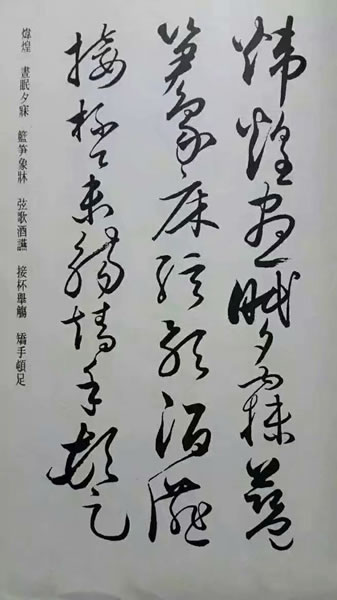 煒煌晝眠夕寐藍
笋象床弦歌酒讌
接杯舉觴矯手頓足
煒煌 晝眠夕寐 籃笋象牀 弦歌酒讌 接杯舉觴 矯手頓足